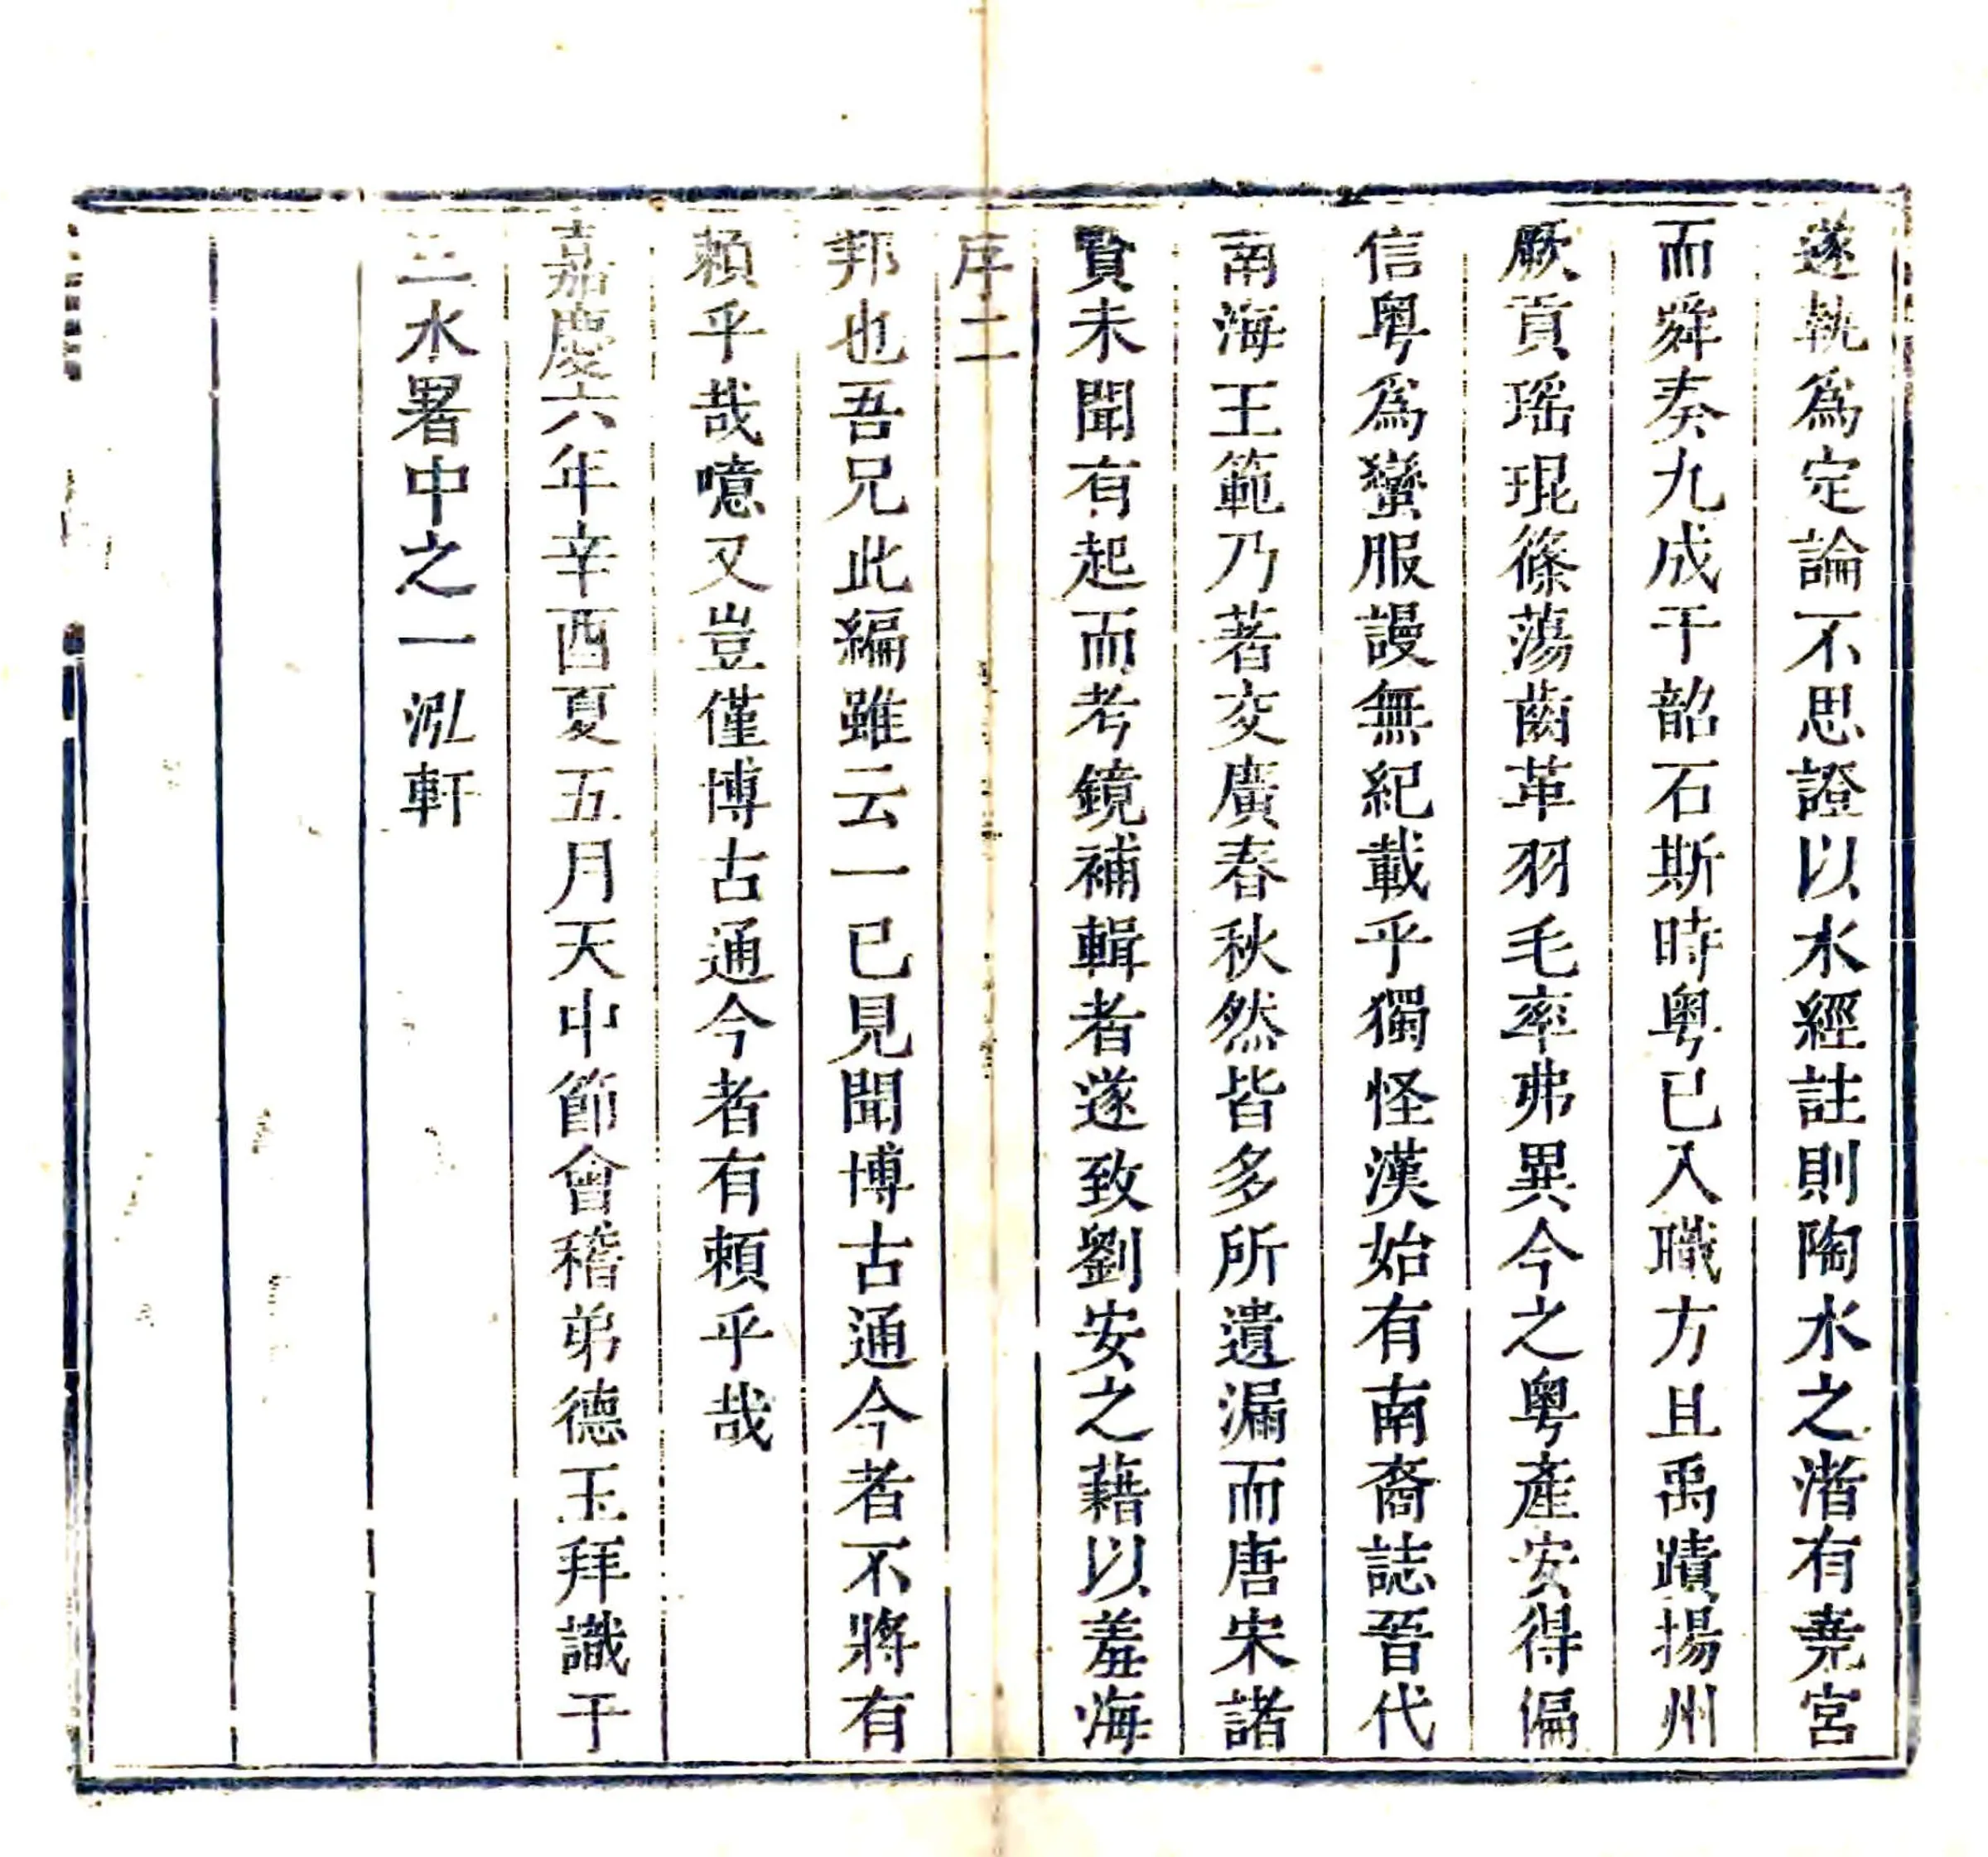 遂執為定論不思證以水經註則陶水之渚有堯宮
而舜奏九成于韶石斯時粤已入職方且禹蹟揚州
厥貢瑶琨篠蕩齒革羽毛率弗異今之粤產安得偏
信粤爲蠻服謾無紀載乎獨怪漢始有南裔誌晉代
南海王範乃著交廣春秋然皆多所遺漏而唐宋諸
賢未聞有起而考鏡補輯者遂致劉安之藉以羞海
序二
邦也吾兄此編雖云一已見聞博古通今者不將有
賴乎哉噫又豈僅博古通今者有賴乎哉
嘉慶六年辛酉夏五月天中節會稽弟德玉拜識于
三水署中之一泓軒